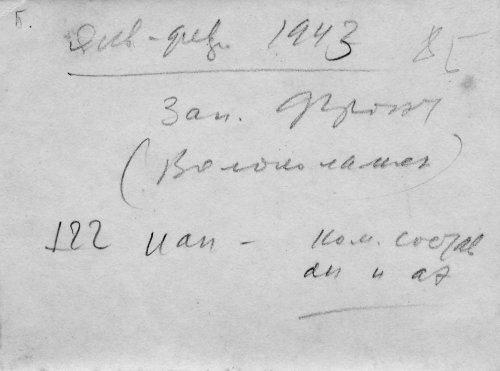 Б.
Янв-фев 1943
85
Зап. Фронт
(Волоколамск)
122 иап - ком. состав
ап и аэ